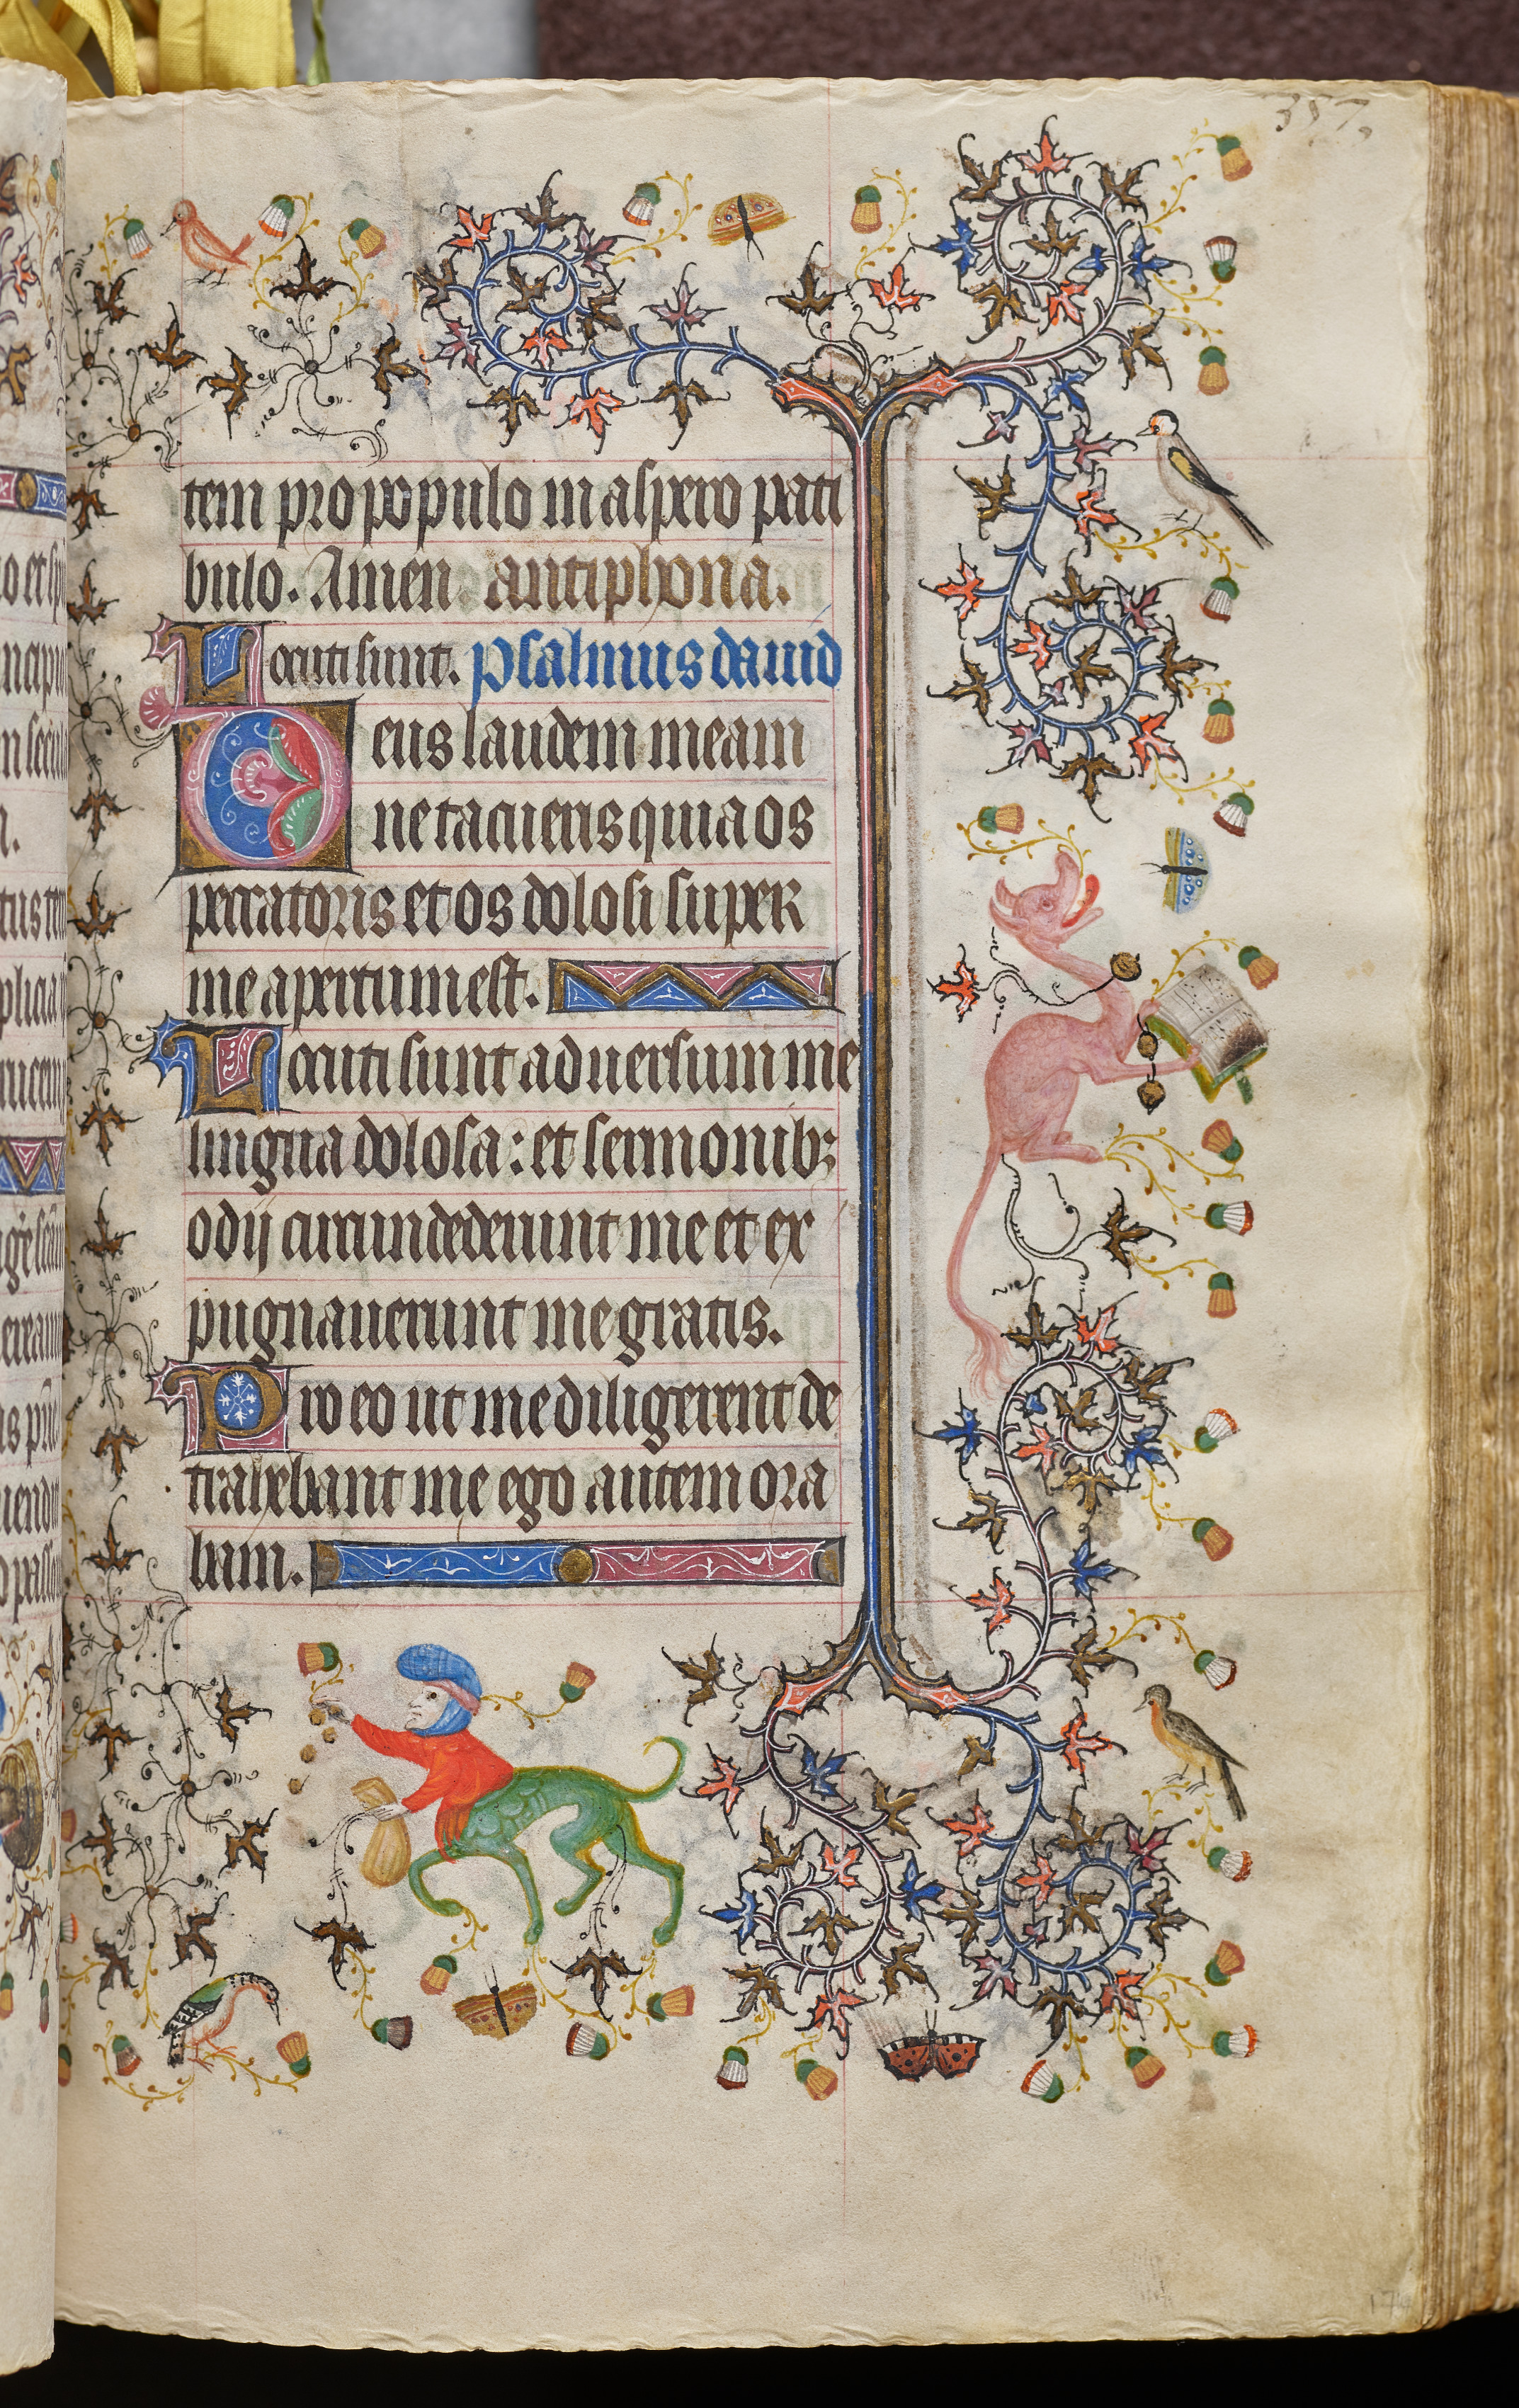 357.
tem pro populo in aspero pati
bulo. Amen. antiphona.
Locuti sunt. psalmus dauid
Deus laudem meam
ne tacueris quia os
peccatoris et os dolosi super
me apertum est.
Locuti sunt aduersum me
lingua dolosa: et sermonib;
odij circundederunt me et ex
pugnauerunt me gratis.
Pro eo ut me diligerent de
trahebant me ego autem ora
bam.